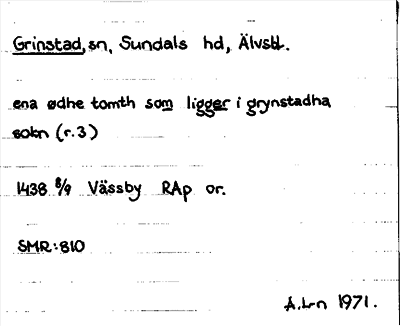 Grinstad, sn, Sundals hd, Älvsbl.
ena ødhe tomth som ligger i grynstadha
sokn (r.3)
1438 8/9 Vässby RAp or.
SMR:810
A.L-n 1971.